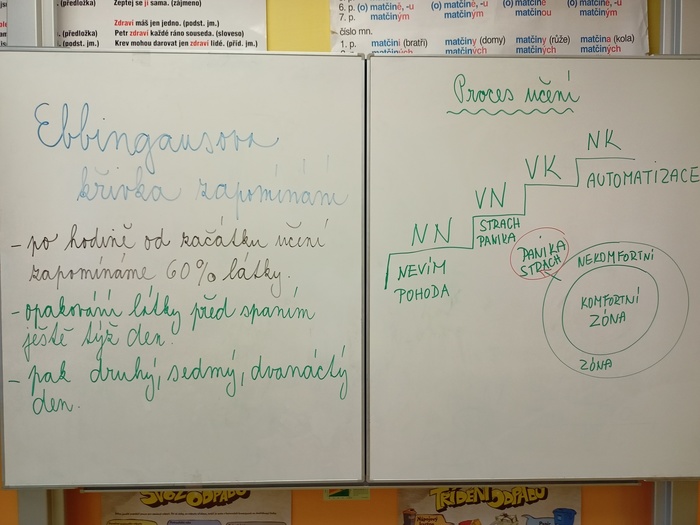 (předložka) Zeptej se jí sama. (zájmeno)
Zdraví máš jen jedno. (podst. jm.)
. (předložka) Petr zdraví každé ráno souseda. (sloveso)
. (podst. jm.) Krev mohou darovat jen zdraví lidé. (příd. jm.)
6. p. (o) matčině, -u (o) matčině (o) matčině, -u
7. p. matčiným matčinou matčiným
číslo mn.
1. p. matčini (bratři) matčiny (domy) matčiny (růže) matčina (kola)
matčiných matčiných matčiných matčiných
Ebbingausova
křivka zapomínání
- po hodině od začátku učení
zapomínáme 60% látky.
- opakování látky před spaním
ještě týž den.
- pak druhý, sedmý, dvanáctý
den.
Proces učení
NK
VK AUTOMATIZACE
VN
NN STRACH
PANIKA
NEVÍM
POHODA
PANIKA
STRACH
NEKOMFORTNÍ
KOMFORTNÍ
ZÓNA
ZÓNA
SVOZ ODPADU
TŘÍDĚNÍ ODPADU